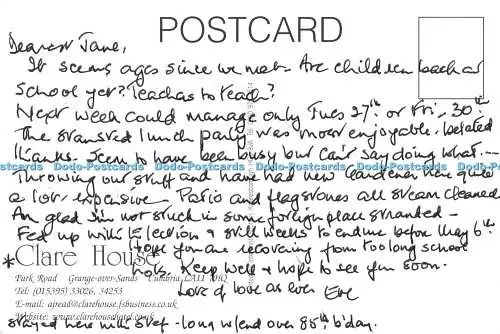 POSTCARD
Dearest Jane,
It seems ages since we met. Are children back at
school yet? Teachas to read?
Next week could manage only Tues 27th or Fri. 30th
The lunch party was most enjoyable. belated
thanks. Seem to have been busy but can't say doing what.—
Throwing out stuff and have had new gardener here quite
a lot. expensive. Patio and flagstones all steam cleaned
Am glad I'm not stuck in some foreign place stranded —
Fed up with Election & still weeks to endure before May 6th.
Hope you are recovering from too long school
hols. Keep well & hope to see you soon.
Lots of love as ever
* Clare House
Park Road Grange-over-Sands Cumbria LA11 7HQ
Tel: (015395) 33026, 34253
E-mail: ajread@clarehouse.fsbusiness.co.uk
Website: www.clarehousehotel.co.uk
stayed here with Stef - long w/end over 85th b'day.
Dodo-Postcards Dodo-Postcards Dodo-Postcards Dodo-Postcards